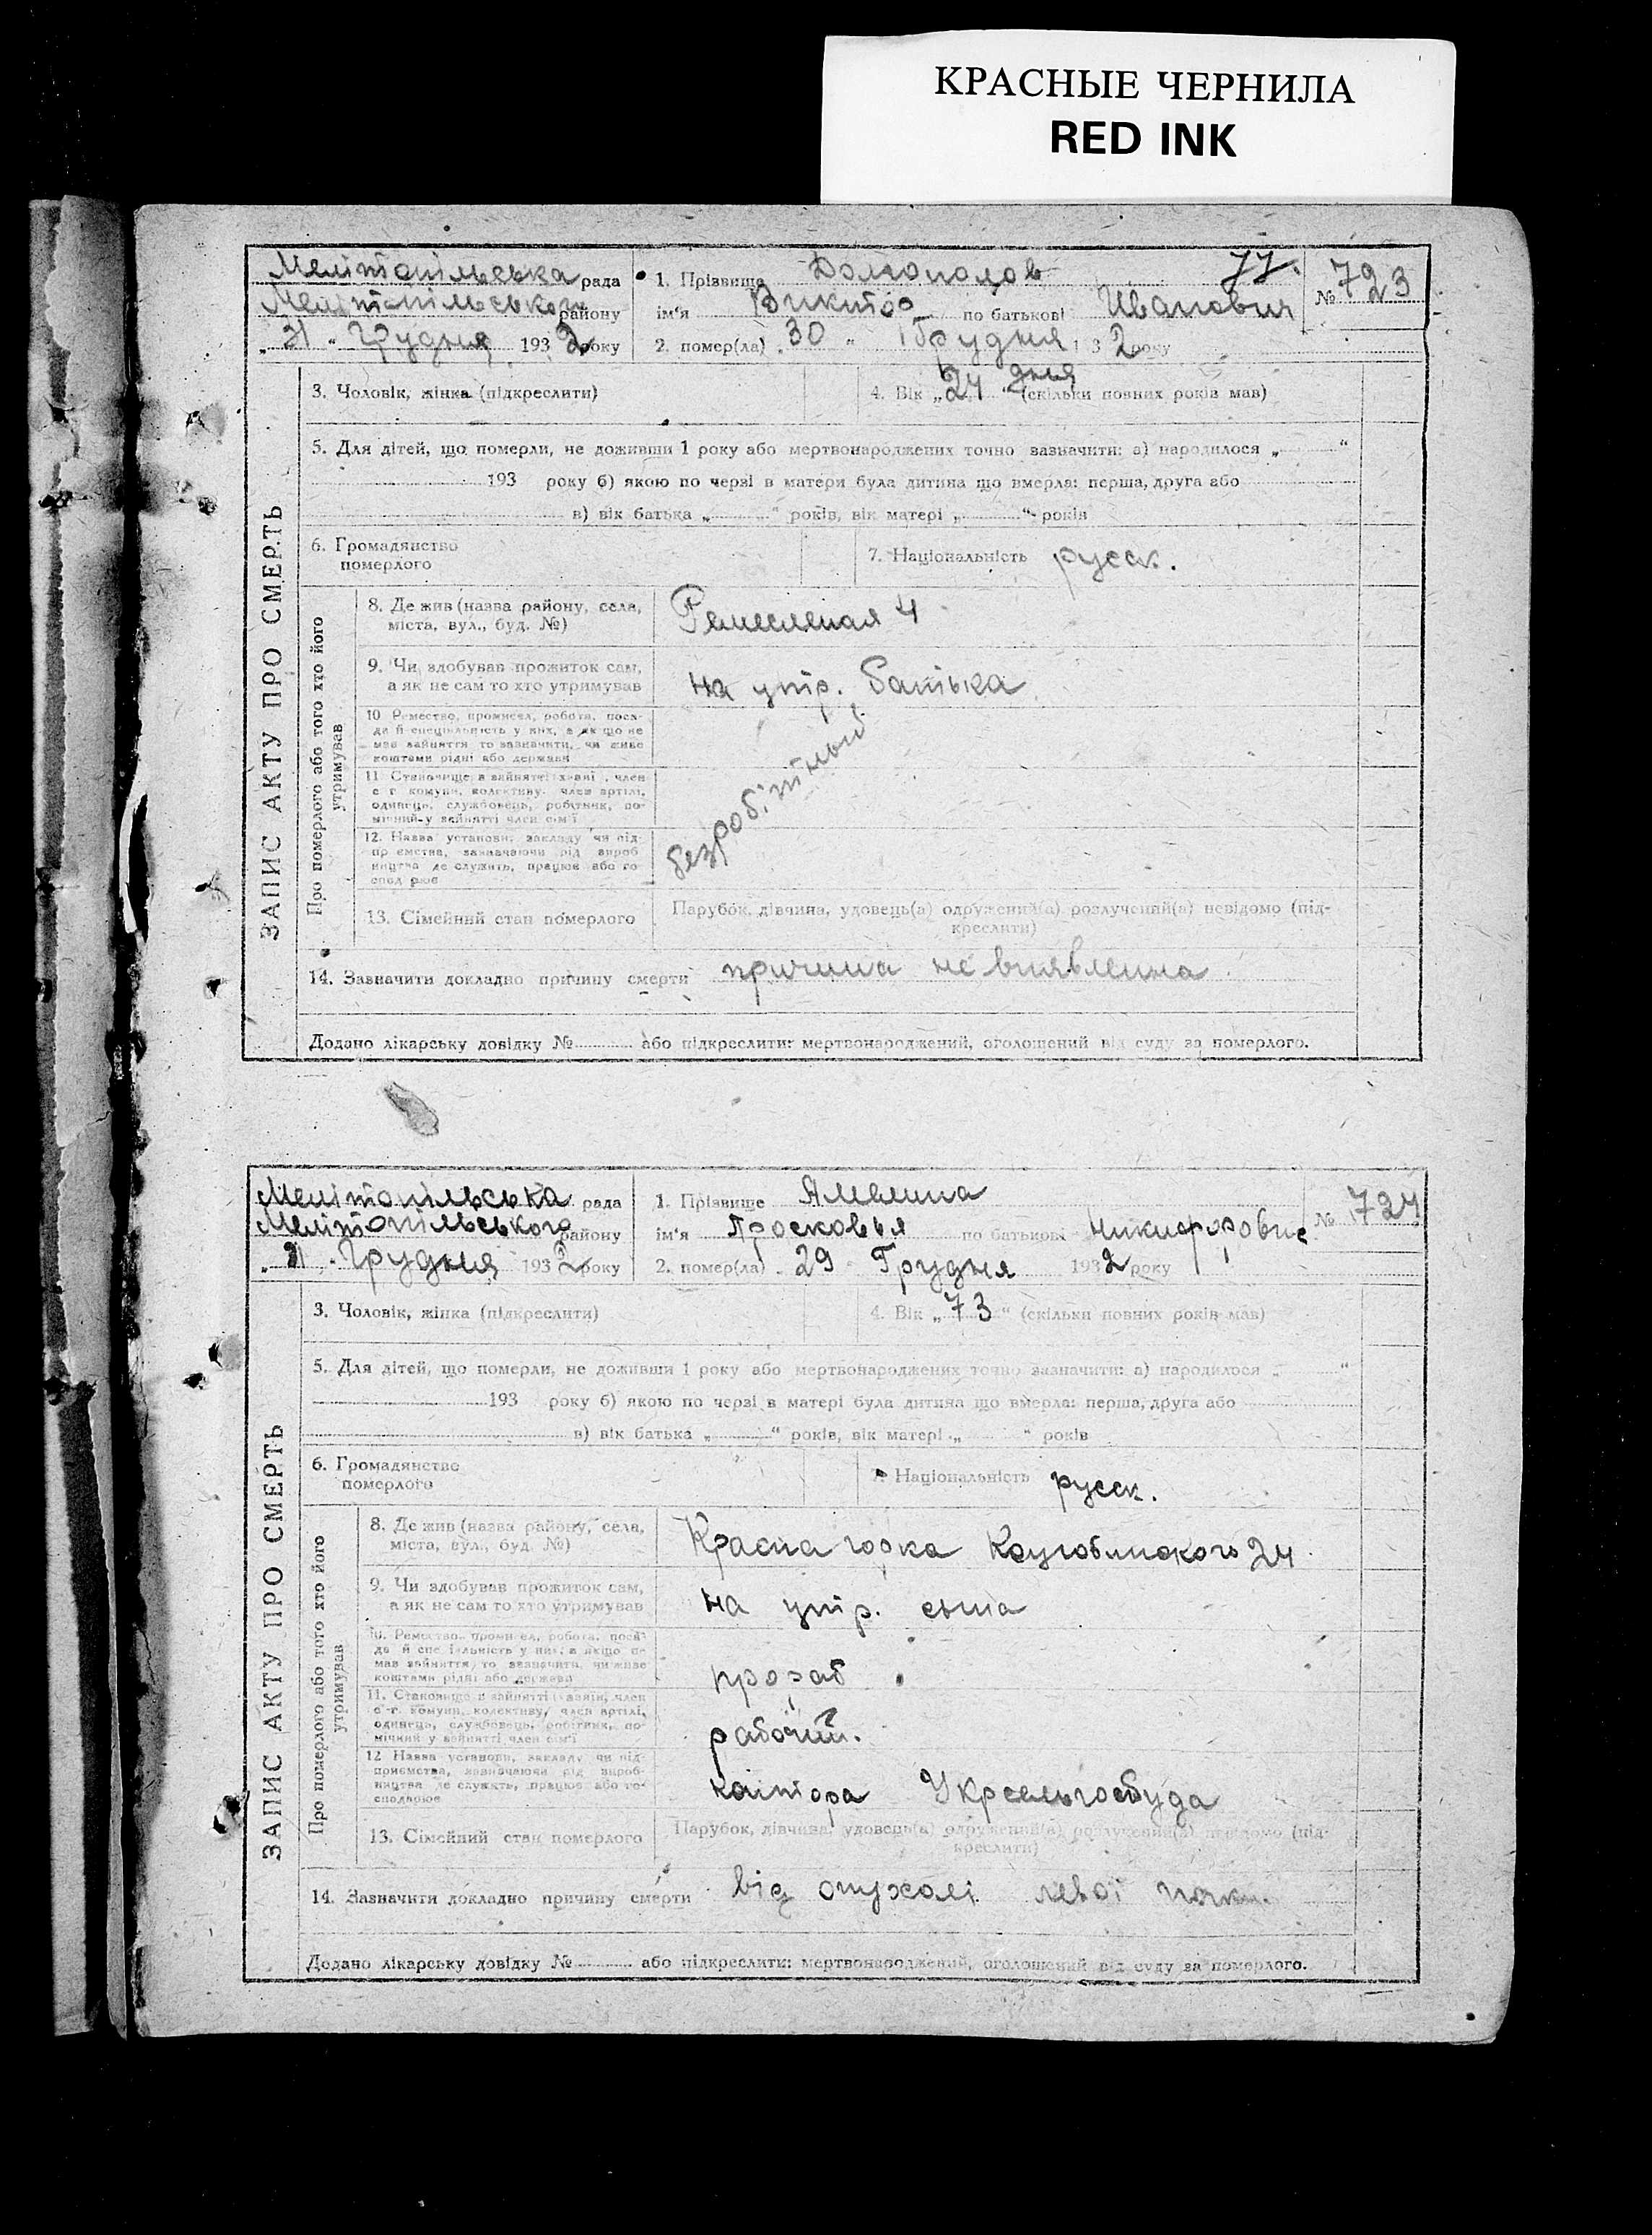 КРАСНЫЕ ЧЕРНИЛА
RED INK
77.
Мелітопільська рада
Мелітопільського району
„31“ Грудня 1932 року
1. Прізвище Долгополов
№ 723
ім'я Виктор по батькові Иванович
2. помер(ла) 30 “ Грудня 1 3 2 року
ЗАПИС АКТУ ПРО СМЕРТЬ
3. Чоловік, жінка (підкреслити)
4. Вік „24 дня“ (скільки повних років мав)
5. Для дітей, що померли, не доживши 1 року або мертвонароджених точно зазначити: а) народилося „ “
193 року б) якою по черзі в матери була дитина що вмерла: перша, друга або
в) вік батька „ “ років, вік матері „ “ років
6. Громадянство
померлого
7. Національність русск.
Про померлого або того хто його
утримував
8. Де жив (назва району, села,
міста, вул., буд. №)
Ремесленая 4
9. Чи здобував прожиток сам,
а як не сам то хто утримував
на утр. батька
10 Ремество, промисел, робота, поса-
да й специільність у них, а як що не
мав зайняття то зазначити, чи живе
коштами рідні або держави
безробітный
11 Становище в зайнятті: член
с г комуни, колективу, член артілі,
одинець, службовець, робітник, по-
мічний у зайнятті член сім'ї
12. Назва установи, закладу чи під-
пр ємства, зазначаючи рід вироб
ництва де служить, працює або го-
спод рює
13. Сімейний стан померлого
Парубок, дівчина, удовець(а) одружений(а) розлучений(а) невідомо (під-
креслити)
14. Зазначити докладно причину смерти причина не виявлина
Додано лікарську довідку № або підкреслити: мертвонароджений, оголошений від суду за померлого.
Мелітопільська рада
Мелітопільського району
„31 . Грудня 1932 року
1. Прізвище
№ 724
ім'я Просковья по батькові
2. помер(ла) 29 Грудня 1932 року
ЗАПИС АКТУ ПРО СМЕРТЬ
3. Чоловік, жінка (підкреслити)
4. Вік „73“ (скільки повних років мав)
5. Для дітей, що померли, не доживши 1 року або мертвонароджених точно зазначити: а) народилося „ “
193 року б) якою по черзі в матері була дитина що вмерла: перша, друга або
в) вік батька „ “ років, вік матері „ “ років
6. Громадянство
померлого
7. Національність русск.
Про померлого або того хто його
утримував
8. Де жив (назва району, села,
міста, вул., буд. №)
Красна горка 24
9. Чи здобував прожиток сам,
а як не сам то хто утримував
на утр. сына
10. Ремество, промисел, робота, поса-
да й спеціальність у них, а якщо не
мав зайняття то зазначити, чи живе
коштами рідні або держави
прораб
11. Становище в зайнятті член
с-г. комуни, колективу, член артілі,
одинець, службовець, робітник, по-
мічний у зайнятті член сім'ї
рабочий.
12 Назва установи, закладу чи під-
приємства, зазначаючи рід вироб-
ництва де служить, працює або го-
сподарює
контора Укрсельгосбуда
13. Сімейний стан померлого
Парубок, дівчина, удовець(а) одружений(а) розлучений(а) невідомо (під-
креслити)
14. Зазначити докладно причину смерти від опухолі левої
Додано лікарську довідку № або підкреслити: мертвонароджений, оголошений від суду за померлого.